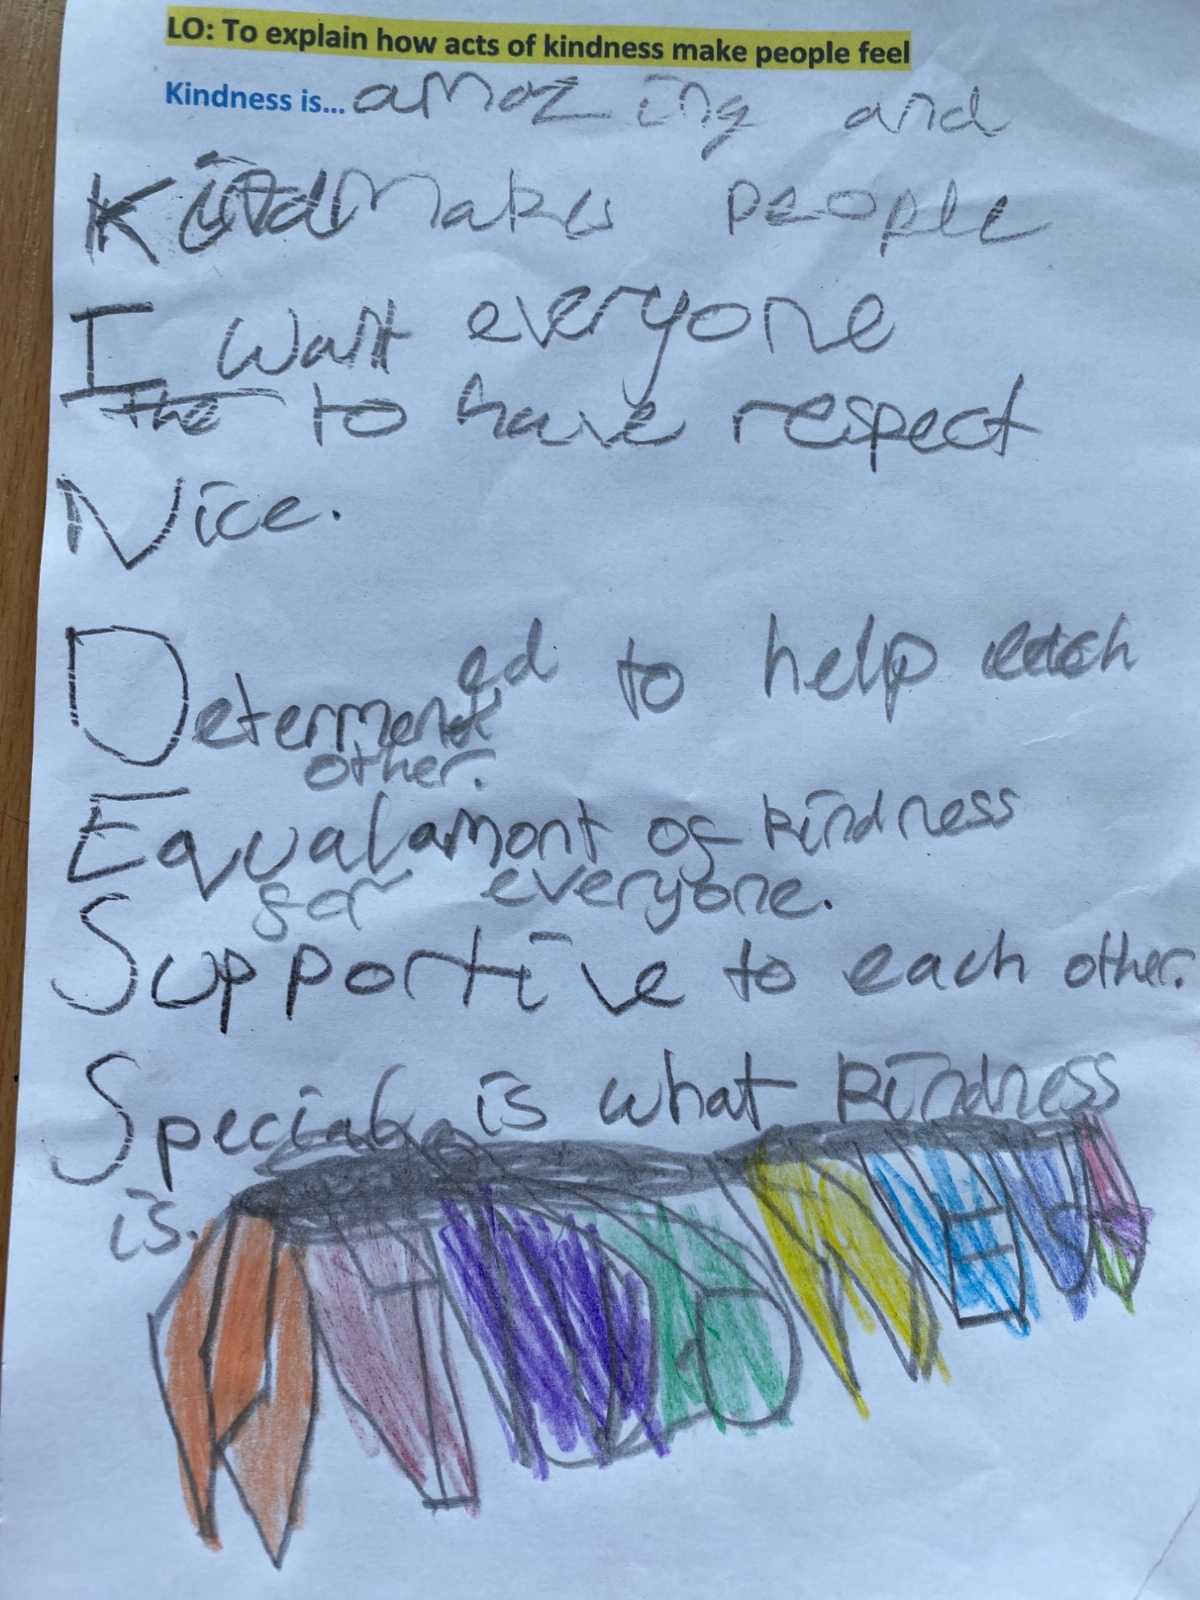 LO: To explain how acts of kindness make people feel
Kindness is... amazing and
Kind makes people
I want everyone
the to have respect
Nice.
Determened to help each
other.
Equal amont of kindness
for everyone.
Supportive to each other.
Special is what kindness
is.